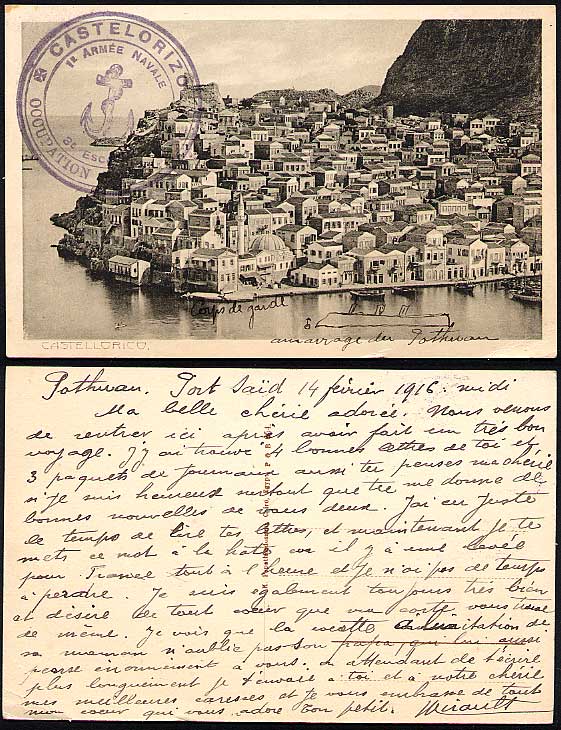 ✠ CASTELORIZO
1E ARMÉE NAVALE
3E ESC
OCCUPATION
Corps de garde
amarrage du Pothuau
CASTELLORICO.
Pothuau. Port Saïd 14 février 1916. midi
Ma belle chérie adorée. Nous venons
de rentrer ici après avoir fait un très bon
voyage. J'y ai trouvé 4 bonnes lettres de toi et
3 paquets de journaux aussi tu penses ma chérie
si je suis heureux surtout que tu me donne de
bonnes nouvelles de vous deux. J'ai eu juste
le temps de lire tes lettres, et maintenant je te
mets ce mot à la hate car il y à une levée
pour France tout à l'heure et je n'ai pas de temps
à perdre. Je suis également toujours très bien
et désire de tout coeur que ma carte vous trouve
de même. Je vois que la cocotte à l'imitation de
sa maman n'oublie pas son papa, qui lui aussi
pense énormément à vous. En attendant de t'écrire
plus longuement je t'envoie à toi et à notre chérie
mes meilleures caresses et je vous embrasse de tout
mon coeur qui vous adore Ton petit